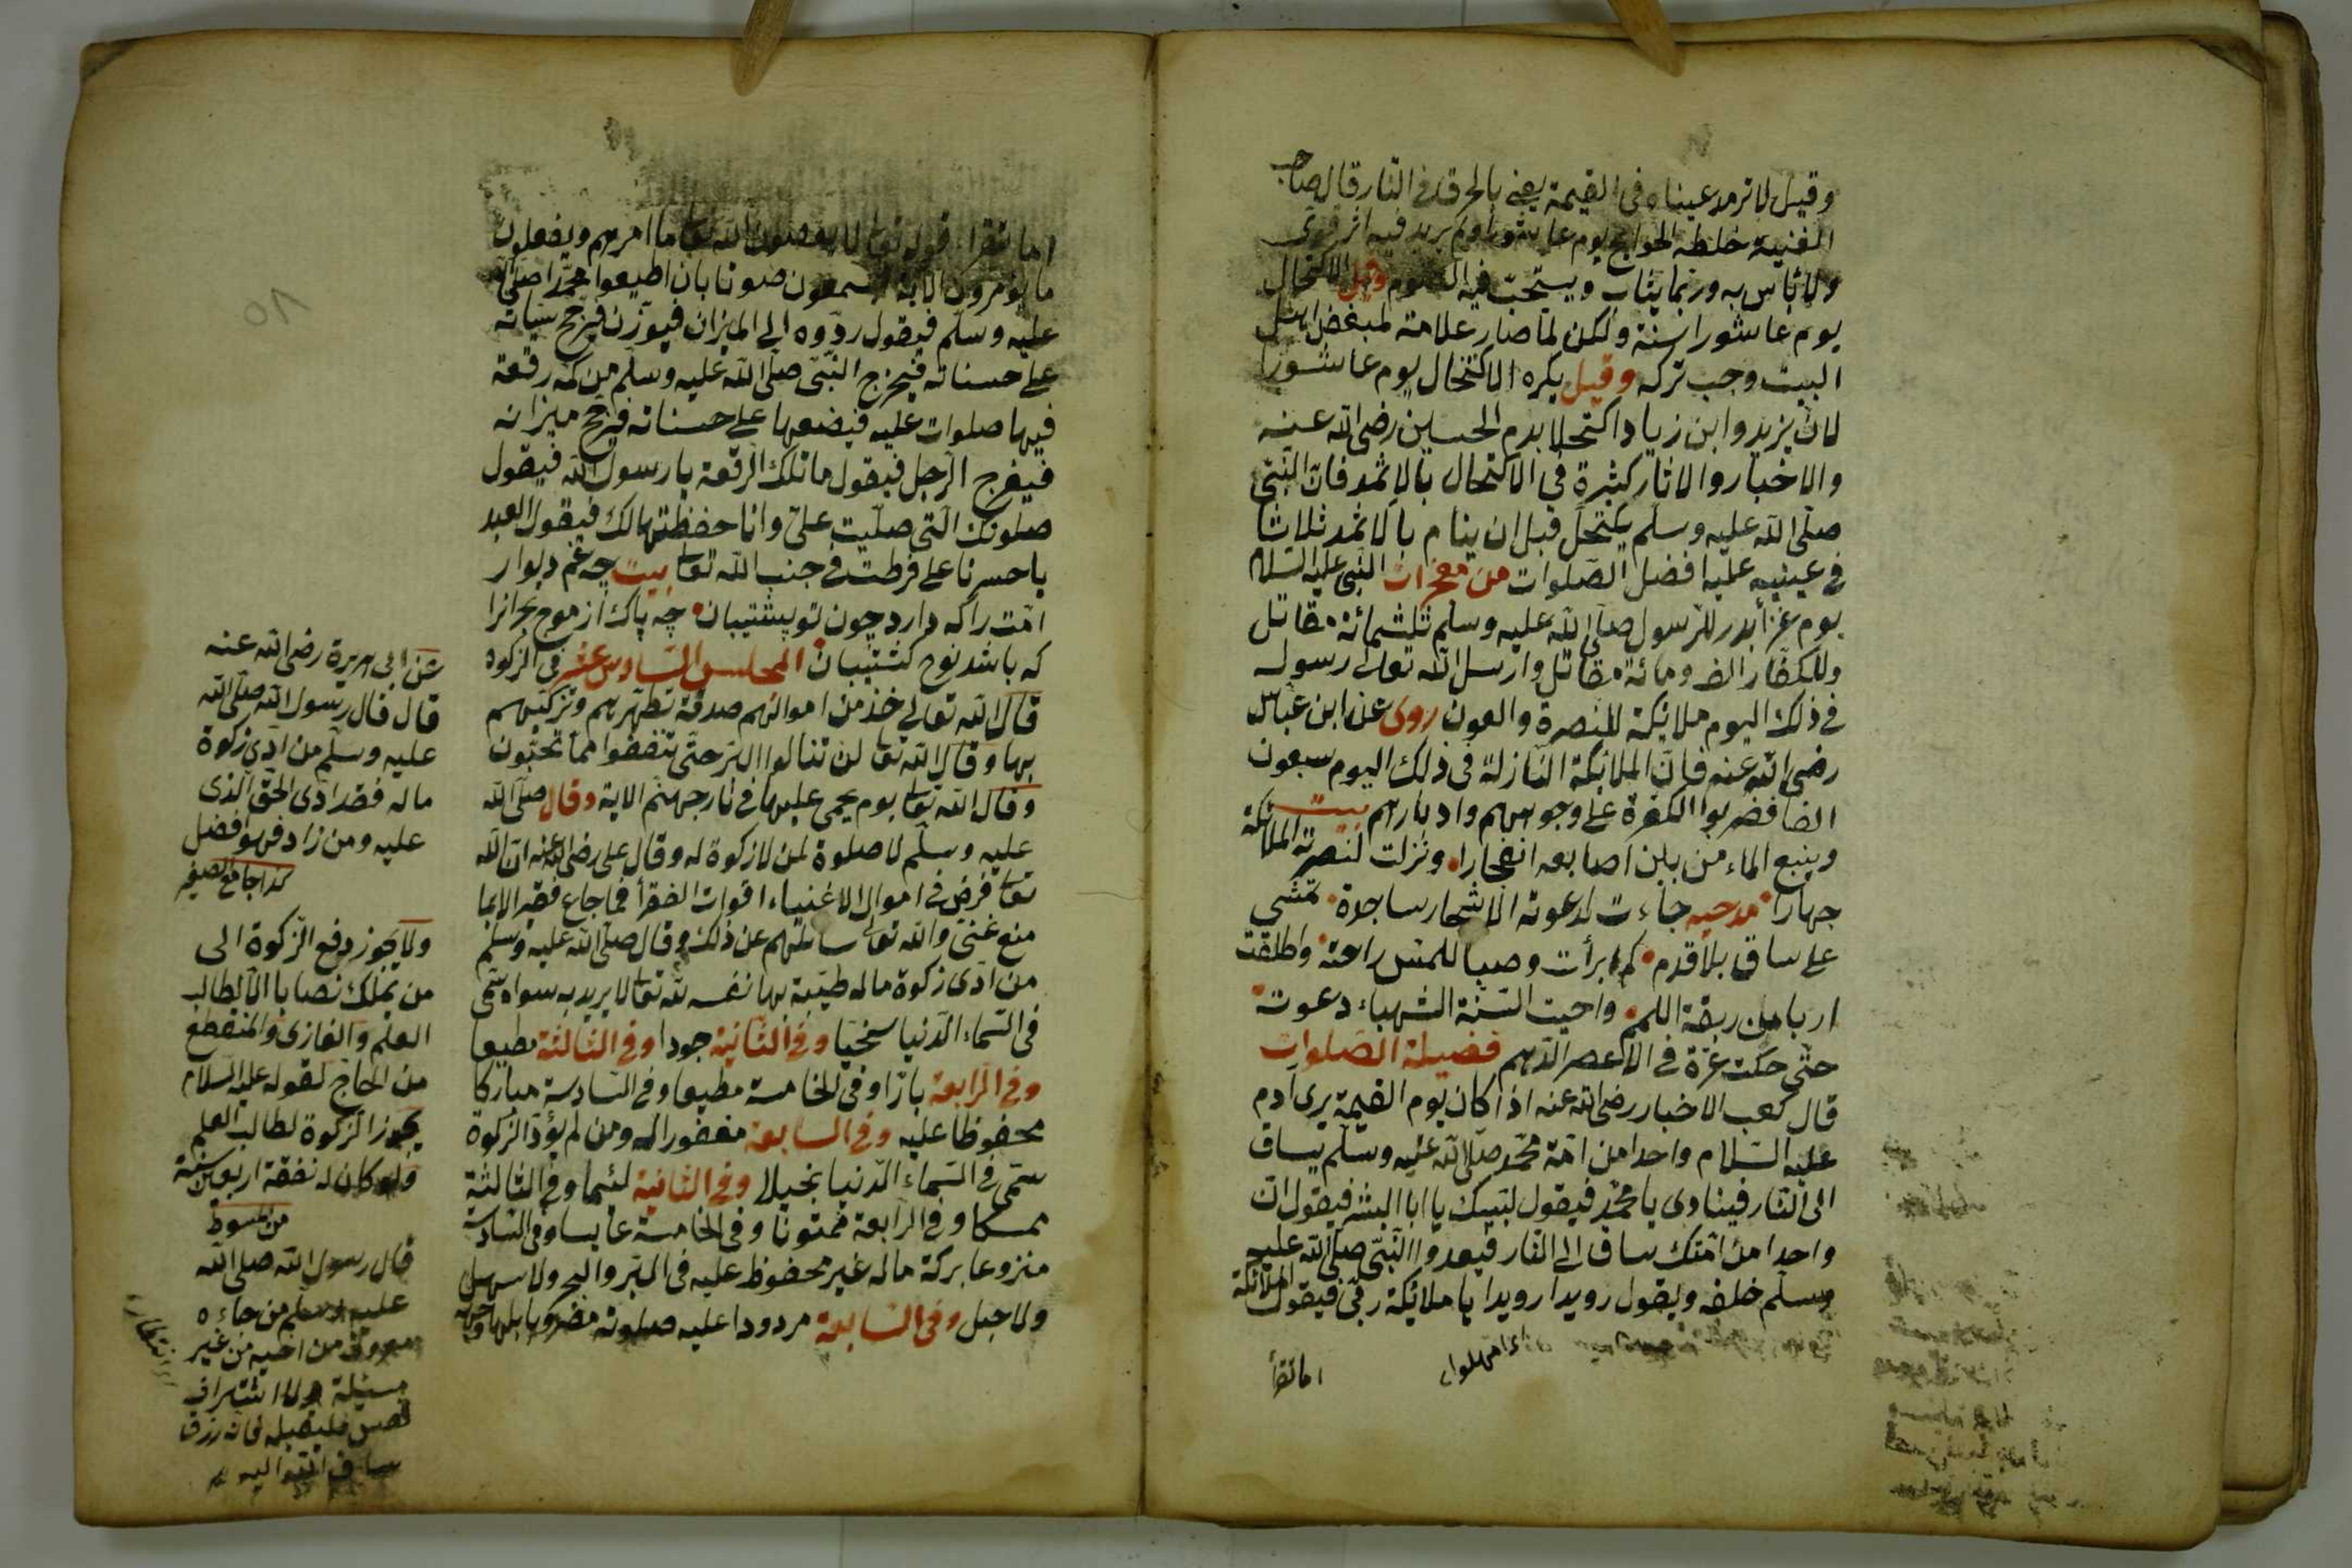 وقيل لا ترمد عيناه فى القيمة يعنى بالحرق فى النار قال صاحب
القنية خلطه الحوايج يوم عاشورا ولم يرد فيه اثر قوى
ولا باس به وربما يثاب ويستحب فيه الصوم وقيل الاكتحال
يوم عاشورا سنة ولكن لما صار علامة لمبغض اهل
البيت وجب تركه وقيل يكره الاكتحال يوم عاشورا
لان يزيد وابن زياد اكتحلا بدم الحسين رضى الله عنه
والاخبار والاثار كثيرة فى الاكتحال بالاثمد فان النبى
صلى الله عليه وسلم يكتحل قبل ان ينام بالاثمد ثلاثا
فى عينيه عليه افضل الصلوات من معجزات النبى عليه السلام
يوم غزا بدر للرسول صلى الله عليه وسلم ثلثمائة مقاتل
وللكفار الف ومائة مقاتل وارسل الله تعالى رسوله
فى ذلك اليوم ملائكة للنصرة والعون روى عن ابن عباس
رضى الله عنه فان الملائكة النازلة فى ذلك اليوم سبعون
الفا فضربوا الكفرة على وجوههم وادبارهم بيت
وينبع الماء من بين اصابعه انفجارا ونزلت لنصرته الملائكة
جهارا مدحيه جاءت لدعوته الاشجار ساجدة تمشى
على ساق بلا قدم كم ابرأت وصبا للمس راحته واطلقت
اربا من ربقة اللمم واحيت السنة الشهباء دعوته
حتى حكت غرة فى الاعصر الدهم فضيلة الصلوات
قال كعب الاخبار رضى الله عنه اذا كان يوم القيمة يرى ادم
عليه السلام واحدا من امة محمد صلى الله عليه وسلم يساق
الى النار فينادى يا محمد فيقول لبيك يا ابا البشر فيقول ان
واحدا من امتك ساق الى النار فيعدوا النبى صلى الله عليه
وسلم خلفه ويقول رويدا رويدا يا ملائكة ربى فيقول الملائكة
اى امهلوا
اما تقرأ
اما تقرا قوله تعا لا يعصون الله تعا ما امرهم ويفعلون
ما يؤمرون الاية فيسمعون صوتا بان اطيعوا محمدا صلى الله
عليه وسلم فيقول ردوه الى الميزان فيوزن فيرجح سياته
على حسناته فيخرج النبى صلى الله عليه وسلم من كمه رقعة
فيها صلوات عليه فيضعها على حسناته فيرجح ميزانه
فيفرح الرجل فيقول ما تلك الرقعة يا رسول الله فيقول
صلوتك التى صليت على وانا حفظتها لك فيقول العبد
يا حسرتا على فرطت فى جنب الله تعا بيت چه غم ديوار
امت را كه دارد چون تو پشتيبان چه باك از موج بحر انرا
كه باشد نوح كشتيبان المجلس السادس عشر فى الزكوة
قال الله تعالى خذ من اموالهم صدقة تطهرهم وتزكيهم
بها وقال الله تعا لن تنالوا البر حتى تنفقوا مما تحبون
وقال الله تعا يوم يحمى عليها فى نار جهنم الاية وقال صلى الله
عليه وسلم لا صلوة لمن لا زكوة له وقال على رضى الله عنه ان الله
تعا فرض فى اموال الاغنياء اقوات الفقرأ فما جاع فقير الا بما
منع غنى والله تعالى سائلهم عن ذلك وقال صلى الله عليه وسلم
من ادى زكوة ماله طيبة بها نفسه لله تعا لا يريد به سواه سمى
فى السماء الدنيا سخيا وفى الثانية جودا وفى الثالثة مطيعا
وفى الرابعة بارا وفى الخامسة مطيعا وفى السادسة مباركا
محفوظا عليه وفى السابعة مغفورا له ومن لم يؤد الزكوة
سمى فى السماء الدنيا بخيلا وفى الثانية لئيما وفى الثالثة
ممسكا وفى الرابعة ممقوتا وفى الخامسة عابسا وفى السادسة
منزوعا بركة ماله غير محفوظ عليه فى البر والبحر ولا سهل
ولا جبل وفى السابعة مردودا عليه صلوته مضروبا بها وجهه
عن ابى هريرة رضى الله عنه
قال قال رسول الله صلى الله
عليه وسلم من ادى زكوة
ماله فقد ادى الحق الذى
عليه ومن زاد فهو افضل
كذا جامع الصغير
ولا يجوز دفع الزكوة الى
من يملك نصابا الا لطالب
العلم والغازى والمنقطع
من الحاج لقوله عليه السلام
يجوز الزكوة لطالب العلم
ولو كان له نفقة اربعين سنة
من مبسوط
قال رسول الله صلى الله
عليه وسلم من جاءه
معروف من اخيه من غير
مسئلة ولا اشراف
نفس فليقبله فانه رزق
ساقه الله اليه
اى انتظار